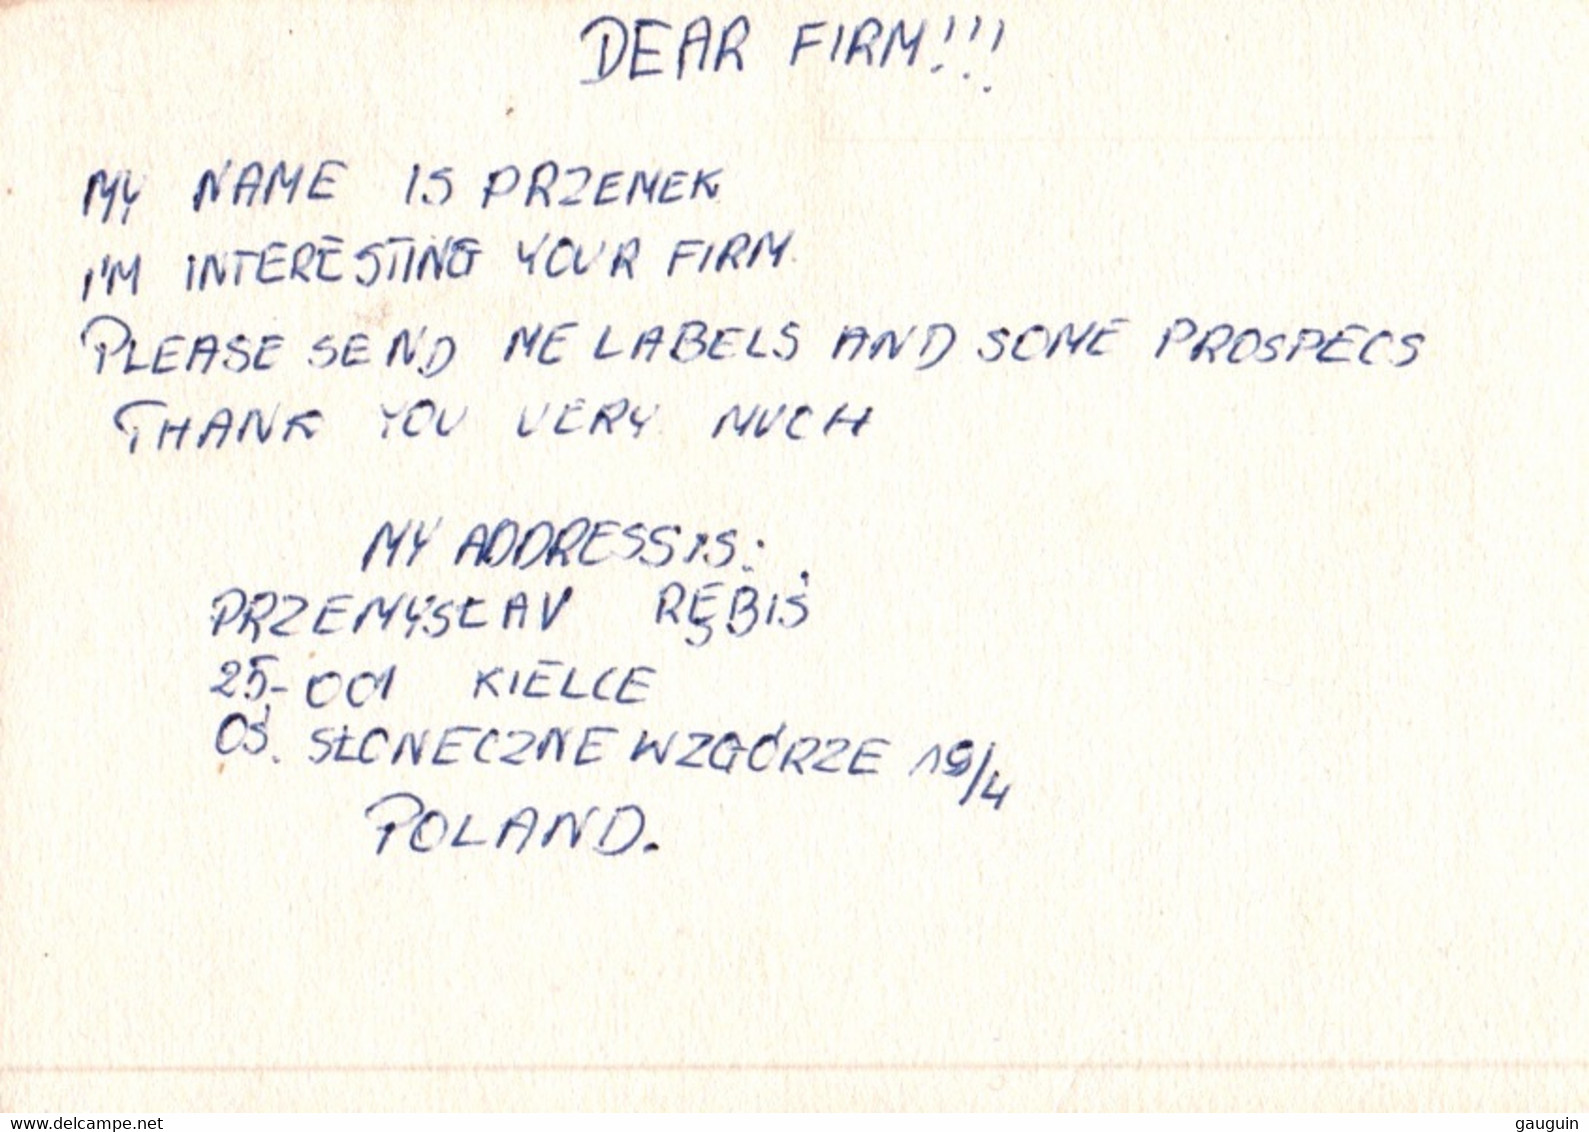 DEAR FIRM!!!
MY NAME IS PRZEMEK
I'M INTERESTING YOUR FIRM.
PLEASE SEND ME LABELS AND SOME PROSPECS
THANK YOU VERY MUCH
MY ADDRESS IS:
PRZEMYSŁAV RĘBIŚ
25-001 KIELCE
OŚ. SŁONECZNE WZGÓRZE 19/4
POLAND.
www.delcampe.net
gauguin